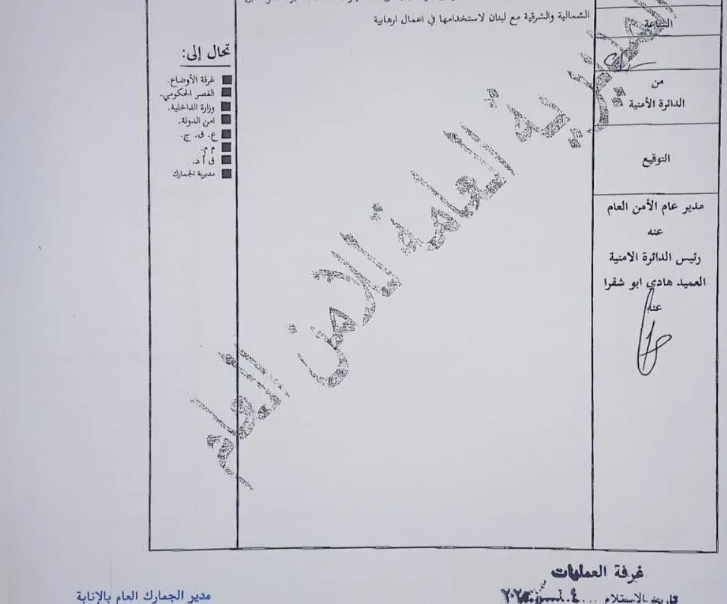 الشمالية والشرقية مع لبنان لاستخدامها في اعمال ارهابية
الساعة
من
الدائرة الأمنية
التوقيع
مدير عام الأمن العام
عنه
رئيس الدائرة الامنية
العميد هادي ابو شقرا
عنه
تحال إلى:
غرفة الأوضاع.
القصر الحكومي.
وزارة الداخلية.
امن الدولة.
ع. ق. ج.
م م.
ف أ د.
مديرية الجمارك
المديرية العامة للامن العام
غرفة العمليات
تاريخ الاستلام
مدير الجمارك العام بالإنابة